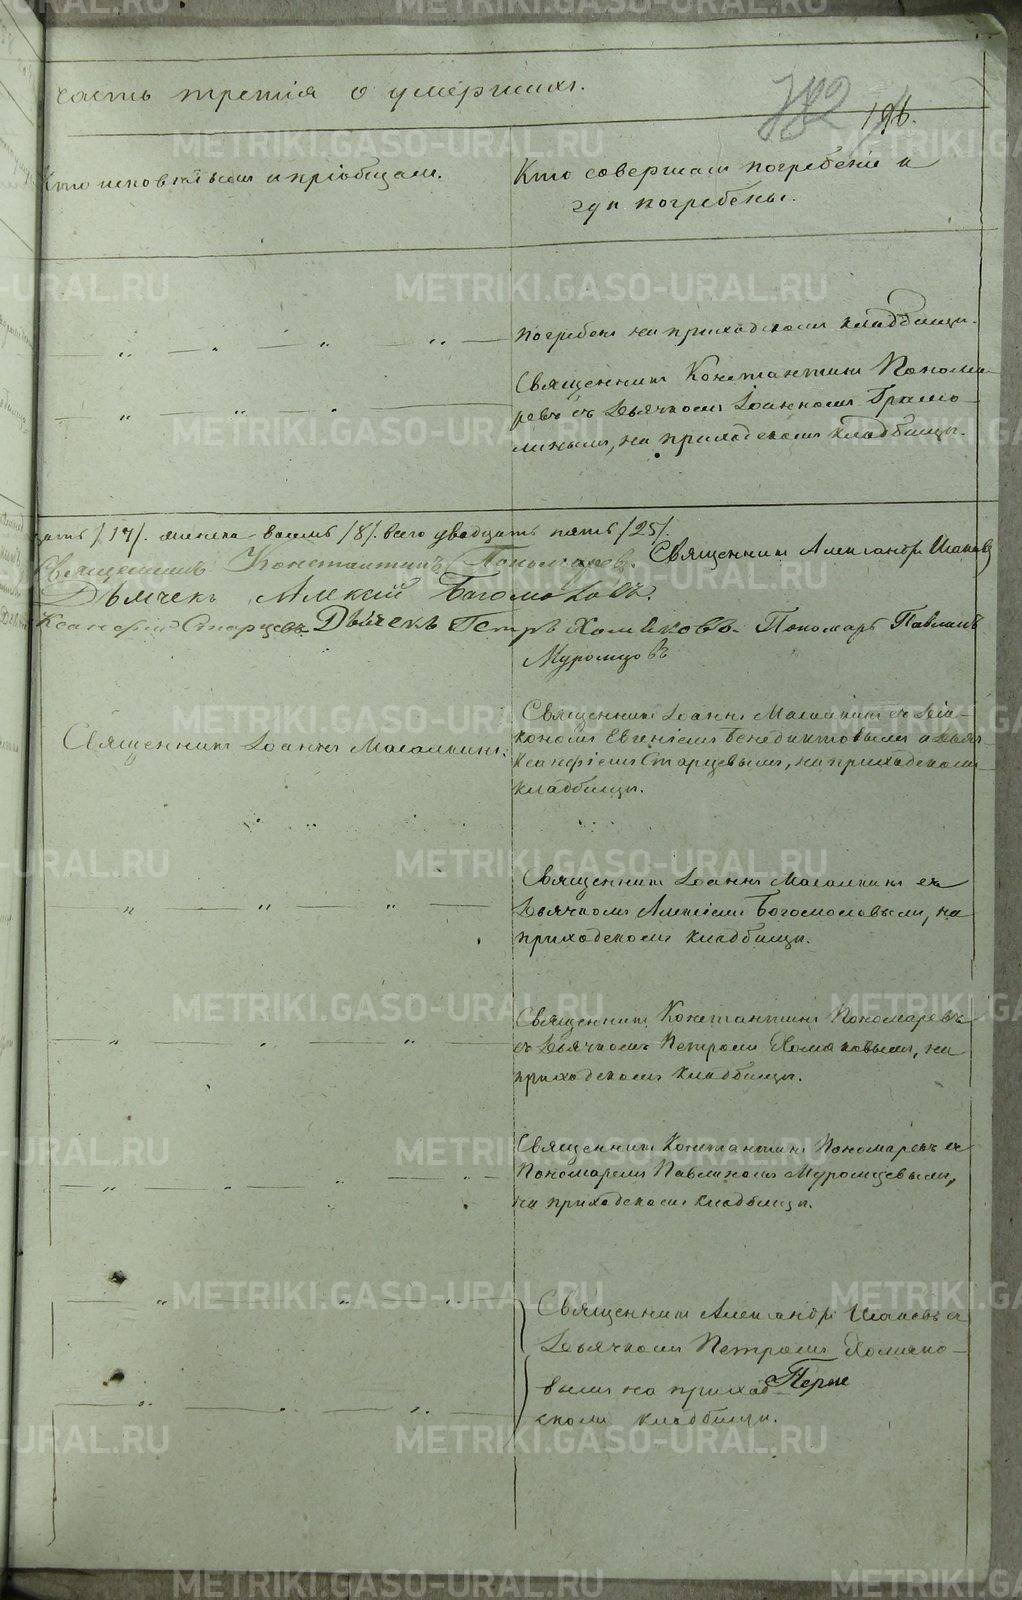 часть третія о умершихъ.
782 196.
Кто исповѣдывалъ и пріобщалъ.
Кто совершалъ погребеніе и
гдѣ погребены.
погребенъ на приходскомъ кладбищѣ.
Священникъ Константинъ Понома-
ревъ съ Дьячкомъ Іоанномъ
на приходскомъ кладбищѣ.
цать /17/. женска восемь /8/. всего двадцать пять /25/.
Священникъ Константинъ Пономаревъ. Священникъ Александръ
Дьячекъ Алексій Богомоловъ.
Ксанофій Старцевъ. Дьячекъ Петръ Хомяковъ. Пономарь Павлинъ
Муромцовъ
Священникъ Іоаннъ
Священникъ Іоаннъ съ Діа-
кономъ Евгеніемъ Бенедиктовымъ и Дьяч.
Ксанфіемъ Старцевымъ, на приходскомъ
кладбищѣ.
Священникъ Іоаннъ съ
Дьячкомъ Алексіемъ Богомоловымъ, на
приходскомъ кладбищѣ.
Священникъ Константинъ Пономаревъ
съ Дьячкомъ Петромъ Хомяковымъ, на
приходскомъ кладбищѣ.
Священникъ Константинъ Пономаревъ съ
Пономаремъ Павлиномъ Муромцевымъ,
на приходскомъ кладбищѣ.
Священникъ Александръ съ
Дьячкомъ Петромъ Хомяко-
вымъ на приход-
скомъ кладбищѣ.
METRIKI.GASO-URAL.RU